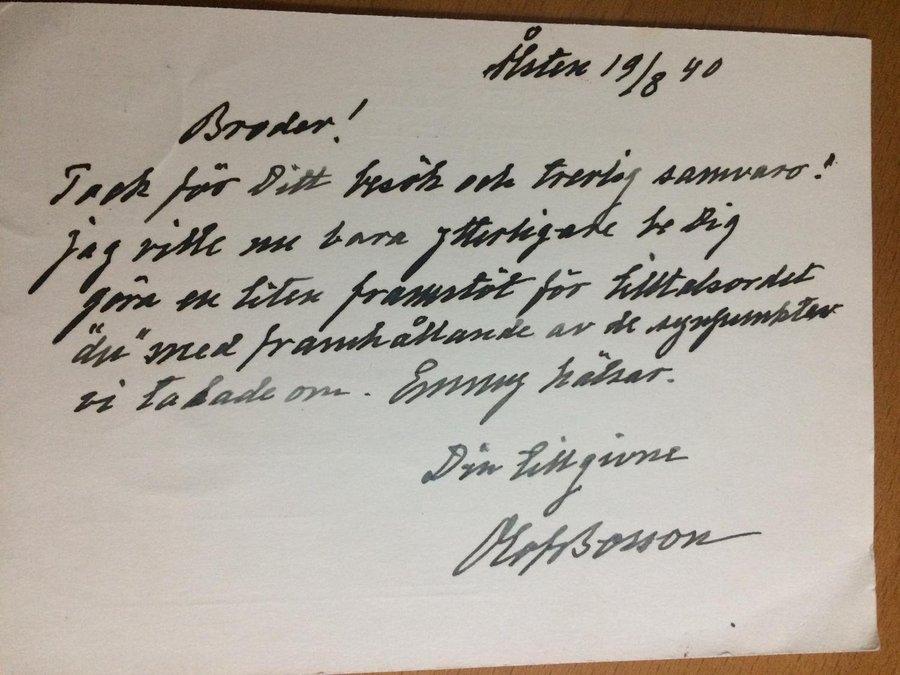 Ålsten 19/8 40
Broder!
Tack för Ditt besök och trevlig samvaro!
jag ville nu bara ytterligare be Dig
göra en liten framstöt för tilltalsordet
"du" med framhållande av de synpunkter
vi talade om. Emmy hälsar.
Din tillgivne
Olof Bosson